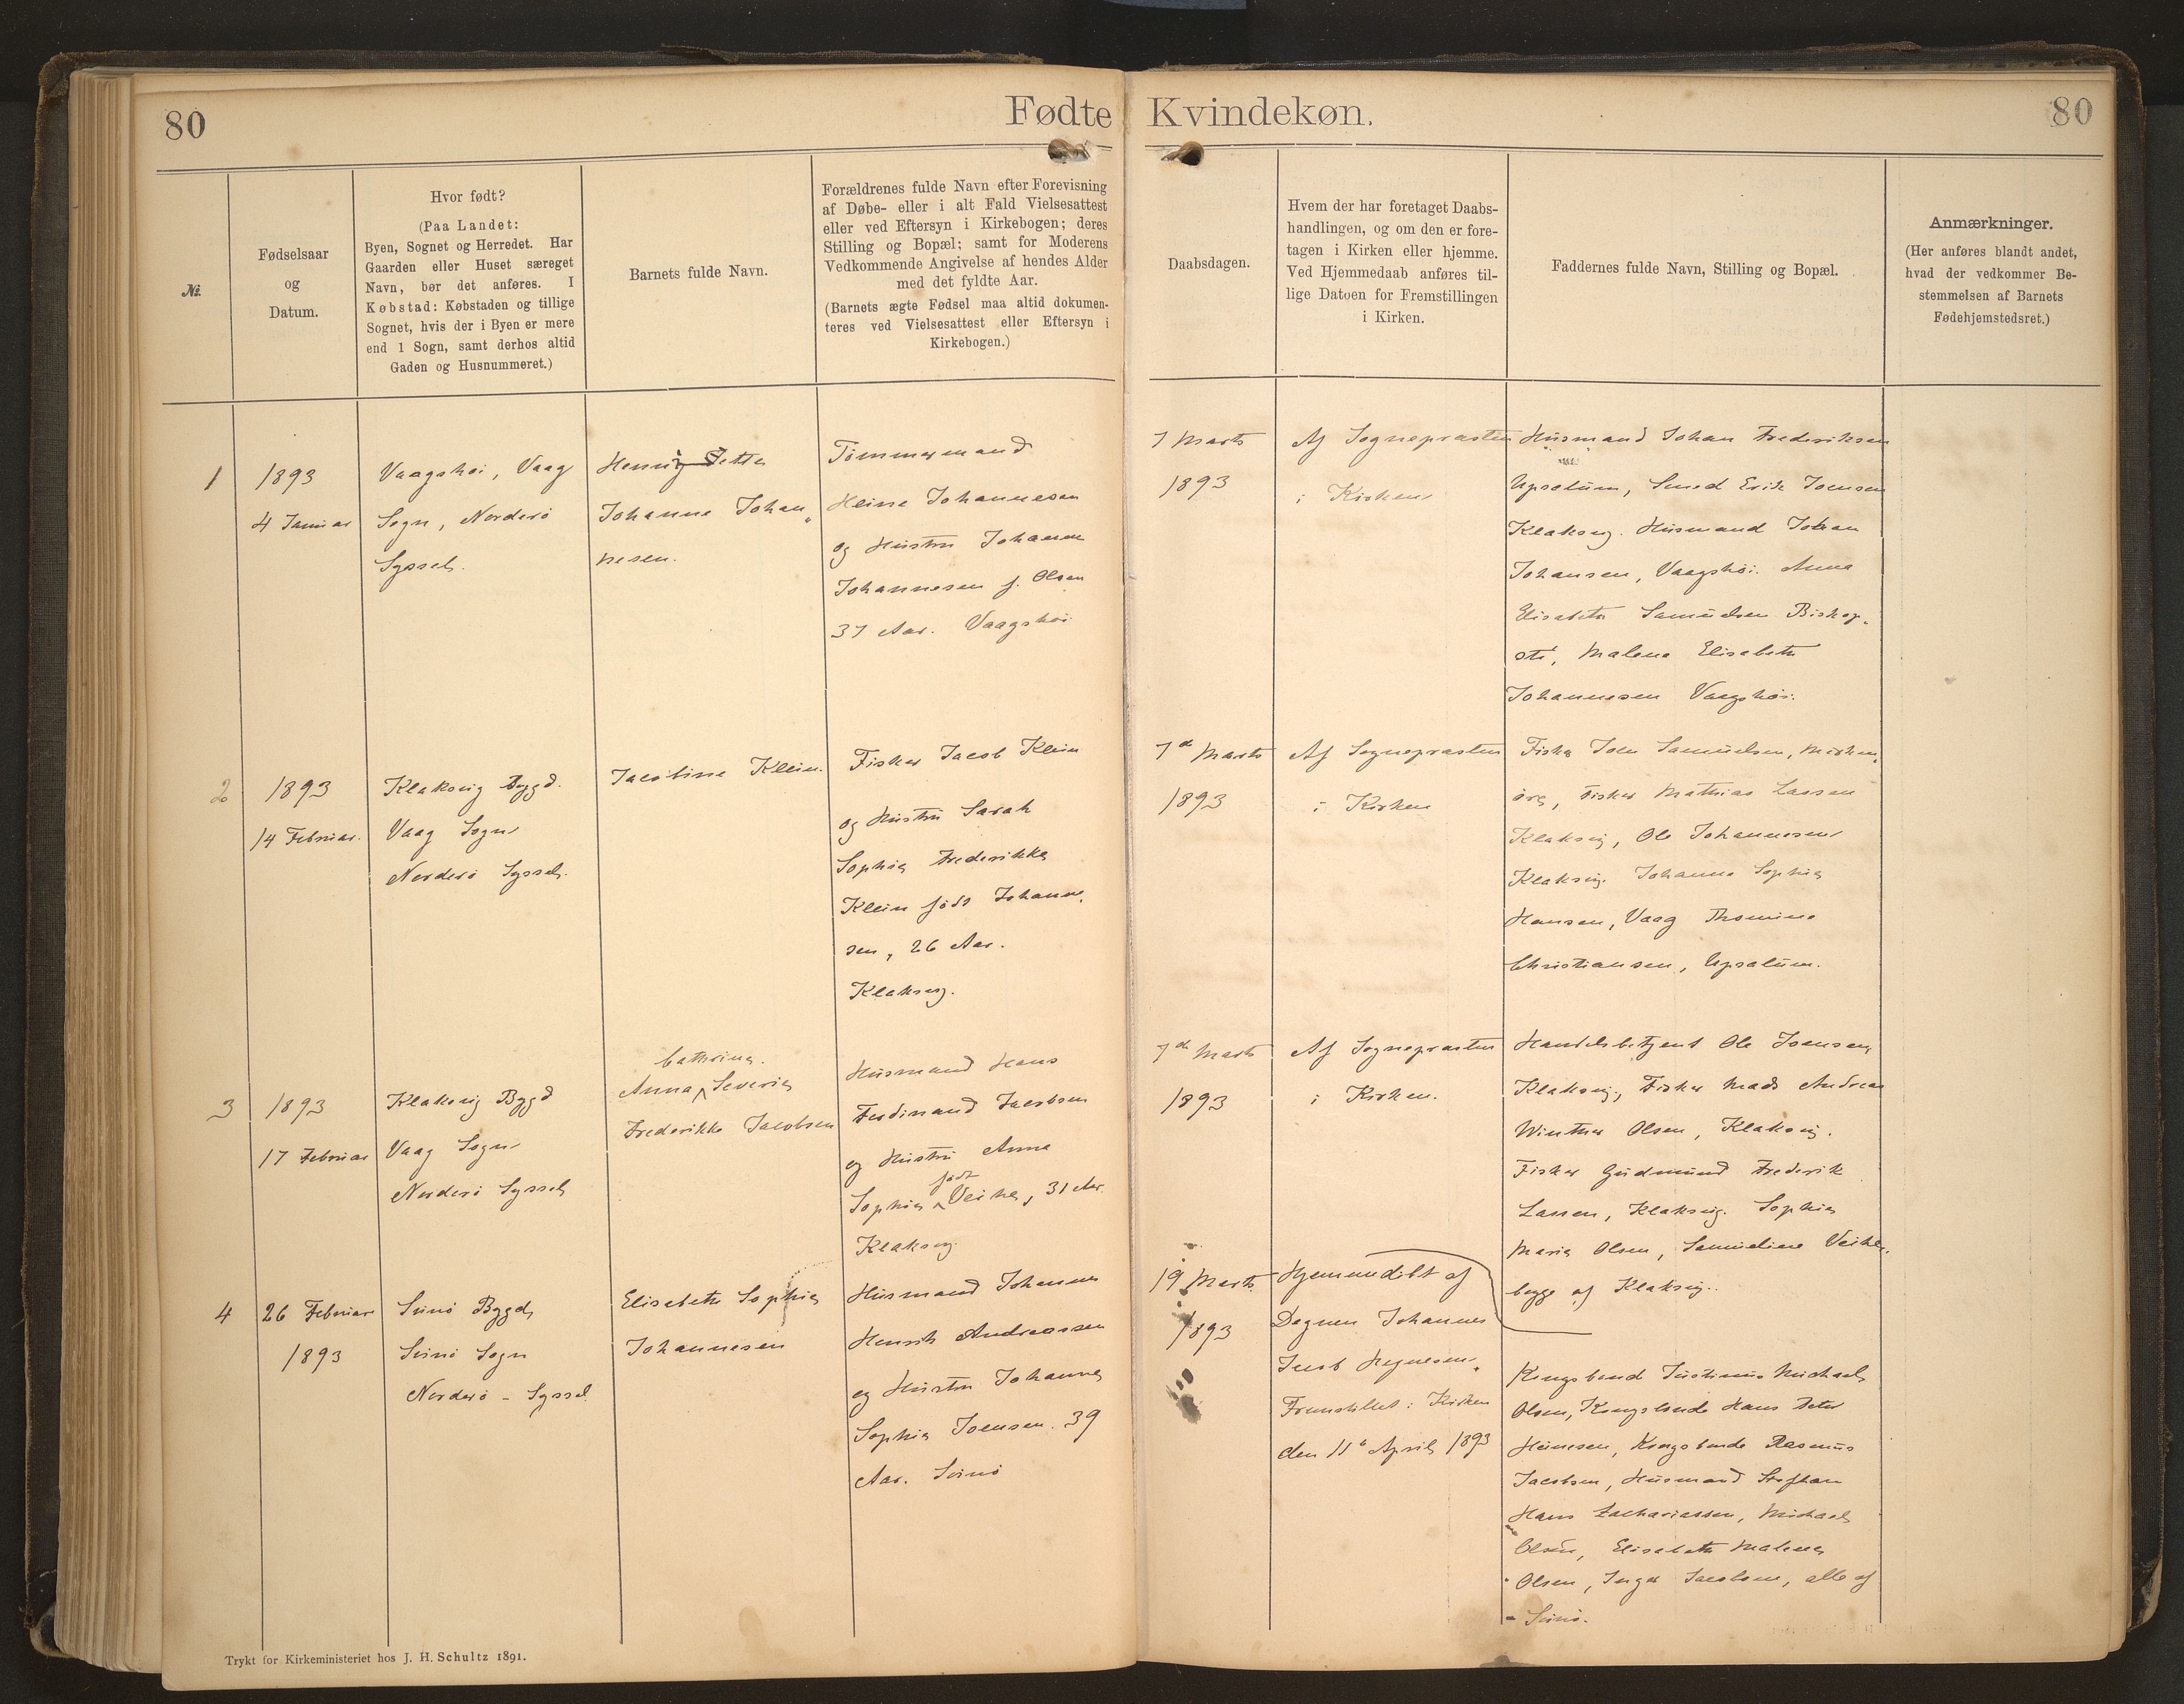 80
Fødte
Kvindekøn.
80
№
Fødselsaar
og
Datum.
Hvor født?
(Paa Landet:
Byen, Sognet og Herredet. Har
Gaarden eller Huset særeget
Navn, bør det anføres. I
Købstad: Købstaden og tillige
Sognet, hvis der i Byen er mere
end 1 Sogn, samt derhos altid
Gaden og Husnummeret.)
Barnets fulde Navn.
Forældrenes fulde Navn efter Forevisning
af Døbe- eller i alt Fald Vielsesattest
eller ved Eftersyn i Kirkebogen; deres
Stilling og Bopæl; samt for Moderens
Vedkommende Angivelse af hendes Alder
med det fyldte Aar.
(Barnets ægte Fødsel maa altid dokumen-
teres ved Vielsesattest eller Eftersyn i
Kirkebogen.)
Daabsdagen.
Hvem der har foretaget Daabs-
handlingen, og om den er fore-
tagen i Kirken eller hjemme.
Ved Hjemmedaab anføres til-
lige Datoen for Fremstillingen
i Kirken.
Faddernes fulde Navn, Stilling og Bopæl.
Anmærkninger.
(Her anføres blandt andet,
hvad der vedkommer Be-
stemmelsen af Barnets
Fødehjemstedsret.)
1
1893
4 Januar
Vaagshøi, Vaag
Sogn, Norderø
Syssel.
Johanne Johan„
nesen.
Tømmermand
Heine Johannesen
og Hustru Johanne
Johannesen f. Olsen
37 Aar. Vaagshøi
7 Marts
1893
Af Sognepræsten
i Kirken
Husmand Johan Frederiksen
Upsalum, Smed Erik Joensen
Klaksvig. Husmand Johan
Johansen, Vaagshøi. Anna
Elisabeth Samuelsen Biskop„
stö, Malene Elisabeth
Johannesen Vaagshøi.
2
1893
14 Februar.
Klaksvig Bygd.
Vaag Sogn
Norderø Syssel.
Jacobine Klein.
Fisker Jacob Klein
og Hustru Sarah
Sophie Frederikke
Klein født Johanne„
sen, 26 Aar.
Klaksvig.
7de Marts
1893
Af Sognepræsten
i Kirken
Fisker Joen Samuelsen, Mirken„
øre, Fisker Mathias Lassen
Klaksvig, Ole Johannesen
Klaksvig. Johanne Sophie
Hansen, Vaag Thomine
Christiansen, Upsalum.
3
1893
17 Februar
Klaksvig Bygd
Vaag Sogn
Norderø Syssel
Cathrine.
Anna Severine
Frederikke Jacobsen
Husmand Hans
Ferdinand Jacobsen
og Hustru Anna
født
Sophie Veihe, 31 Aar.
Klaksvig.
7de Marts
1893
Af Sognepræsten
i Kirken.
Handelsbetjent Ole Joensen,
Klaksvig, Fisker Mads Andreas
Winther Olsen, Klaksvig.
Fisker Gudmund Frederik
Lassen, Klaksvig. Sophie
Marie Olsen, Samueline Veihe,
begge af Klaksvig.
4
26 Februar
1893
Svinø Bygd,
Svinø Sogn
Norderø - Syssel
Elisabeth Sophie
Johannesen
Husmand Johannes
Henrik Andreassen
og Hustru Johanne
Sophie Joensen. 39
Aar. Svinø
19 Marts
1893
Hjemmedøbt af
Degnen Johannes
Jacob Hegnesen.
Fremstillet i Kirken
den 11te April 1893
Kongsbonde Justinus Michael
Olsen, Kongsbonde Hans Peter
Heinesen, Kongsbonde Rasmus
Jacobsen, Husmand Steffan
Hans Zachariassen, Michael
Olsen, Elisabeth Malene
Olsen, Inger Jacobsen, alle af
Svinø.
Trykt for Kirkeministeriet hos J. H. Schultz 1891.